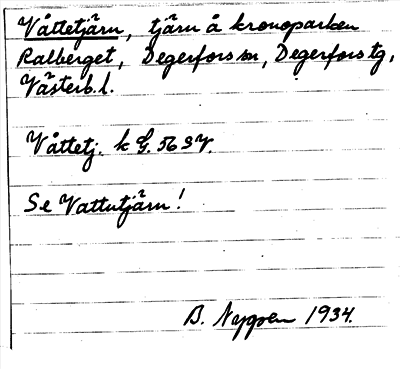 Våttetjärn, tjärn å kronoparken
Ralberget, Degerfors sn, Degerfors tg,
Västerb. l.
Våttetj. k G. 56 SV.
Se Vattutjärn!
B. Nygren 1934.